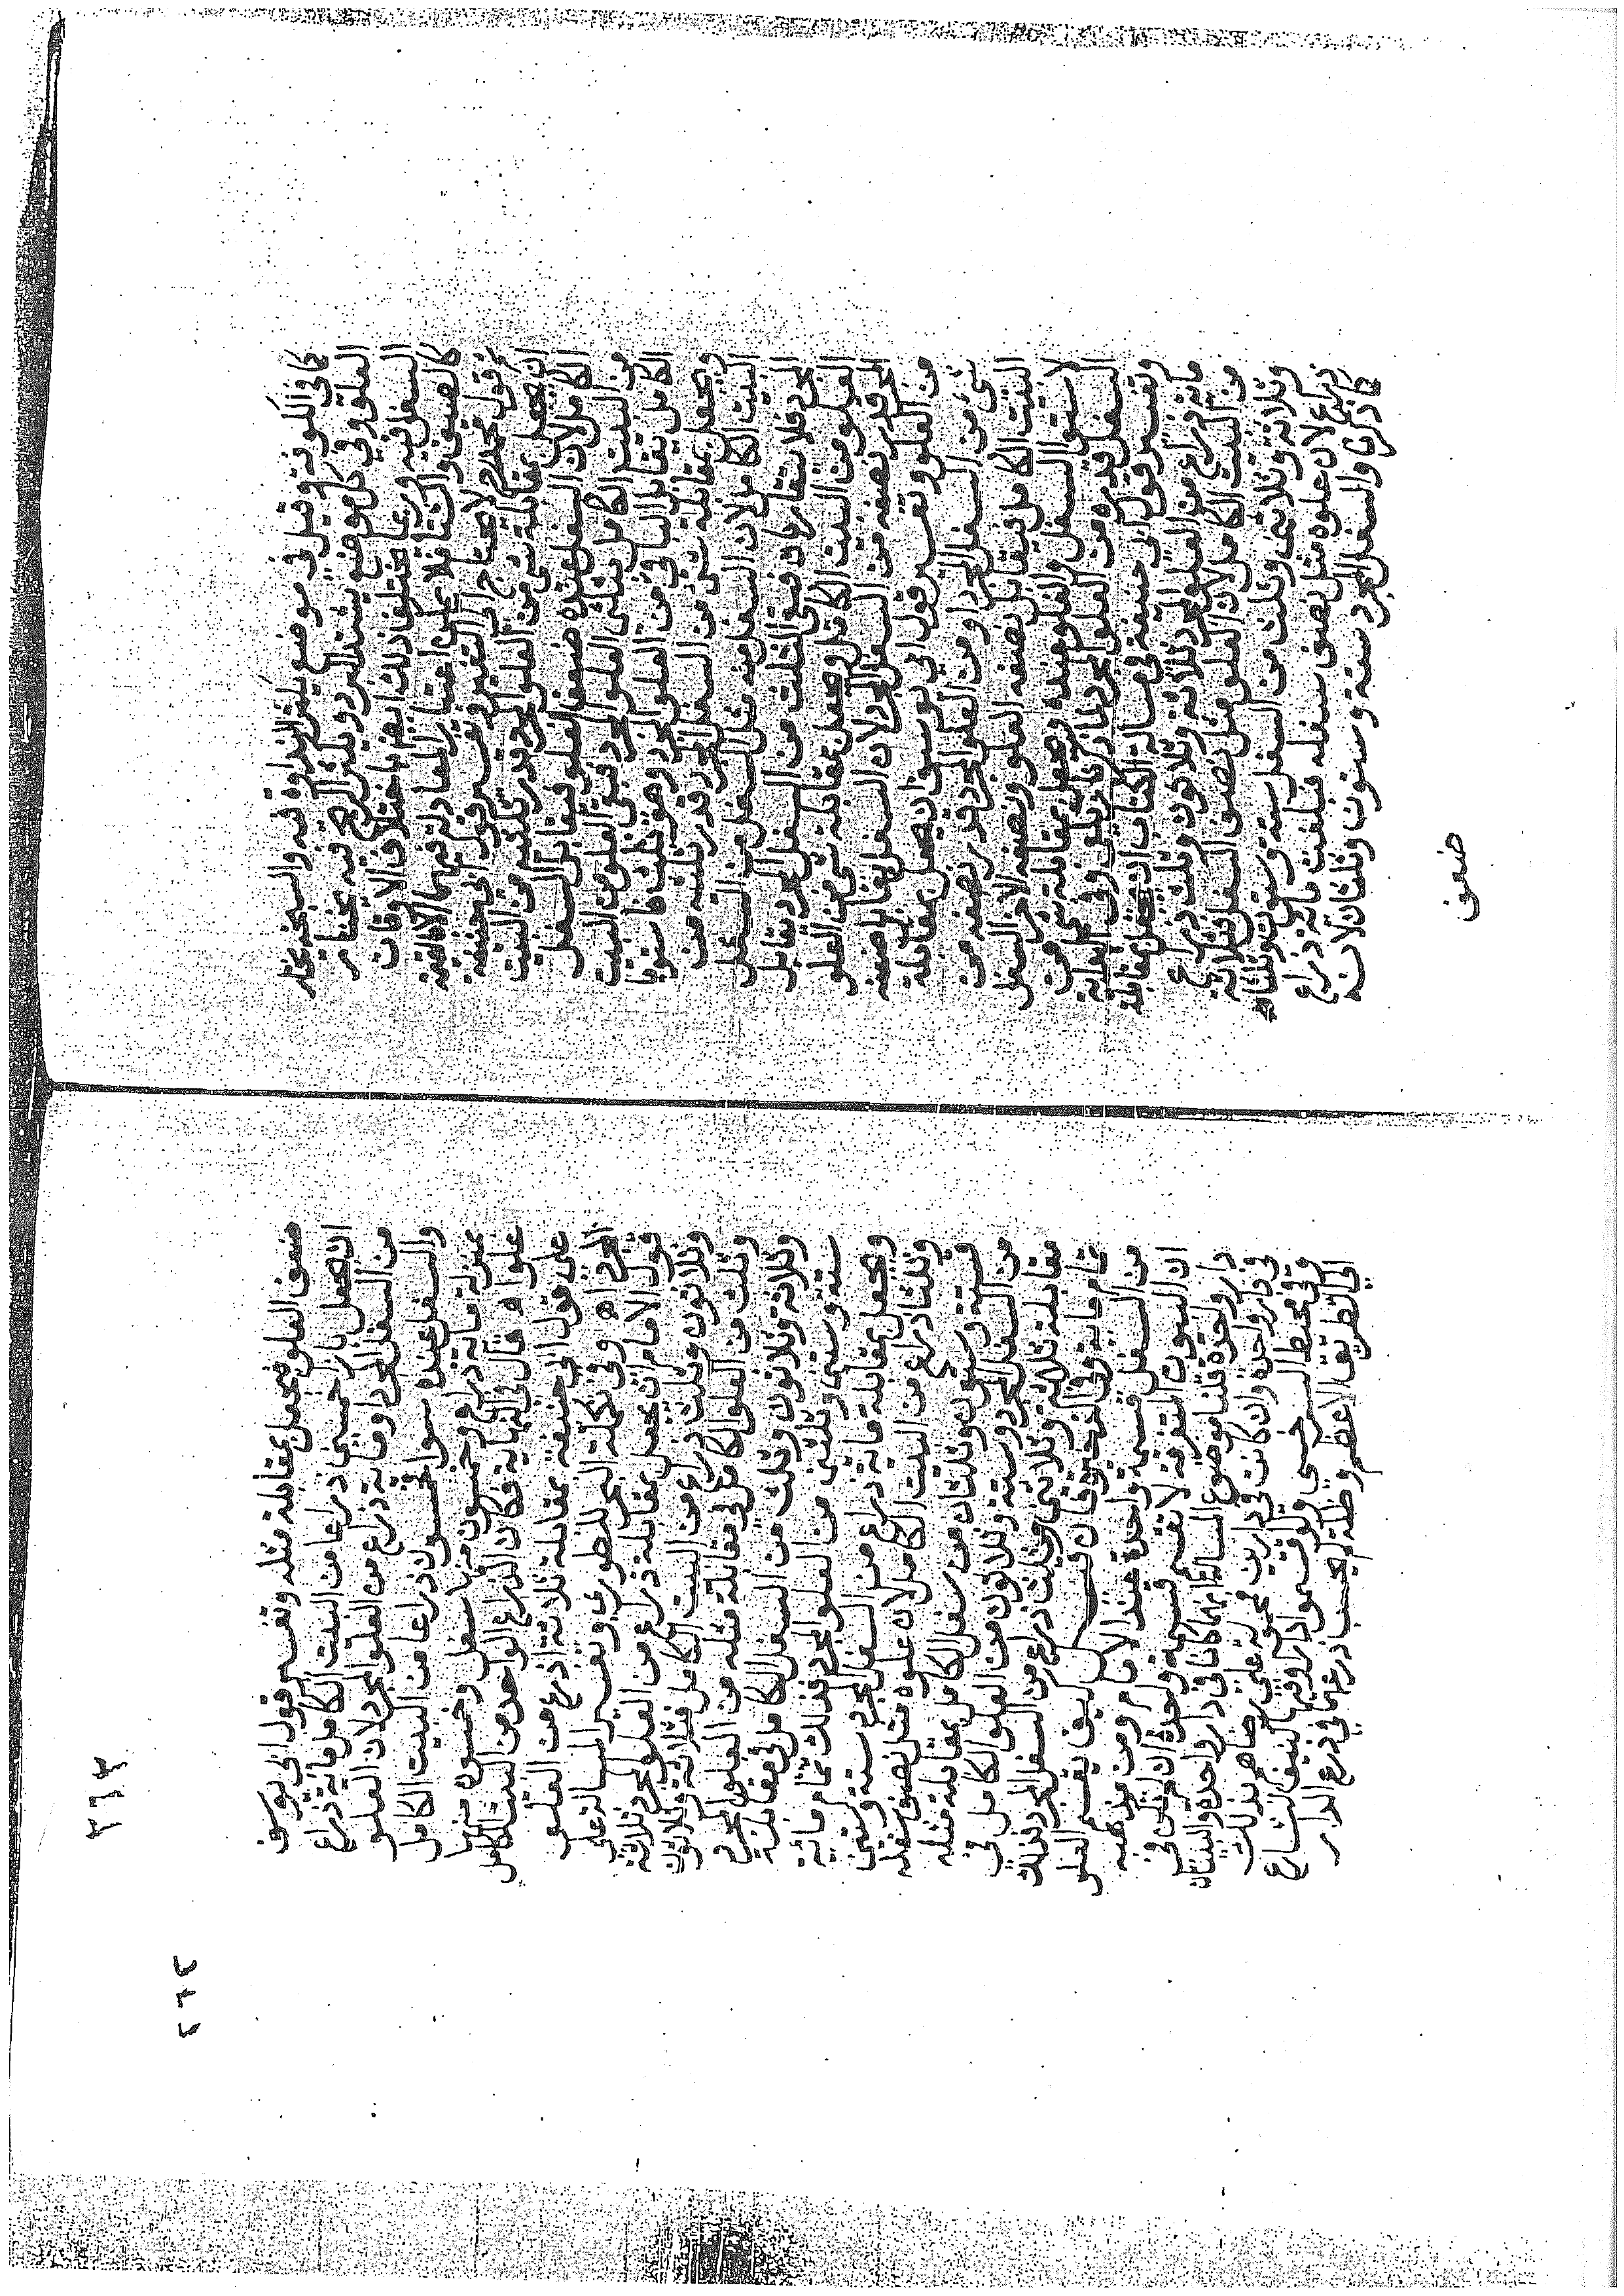 كما في الكوفة وقيل في موضع يكثر النداوة فيه والسبخة يختار
العلو وفي كل موضع يشتد البرد ويكثر الريح فيه يختار
السفل فيه وربما يختلف ذلك ايضا باختلاف الاوقات
كالصيف والشتا فلا يمكن اعتبار المعادلة فيهما الا بالقيمة
وقول محمد لا يحتاج الى التفسير وتفسير قول ابي حنيفة
ان يجعل بمقابلة شي من العلو المجرد قدر ثلثه من البيت
الكامل لان السفل عنده ضعف العلو فيقابل السفل
من البيت الكامل ثلثي العلو المجرد فبقي العلو من البيت
الكامل يقابل الباقي من العلو المجرد وهو ثلث فاستويا
ويجعل بمقابلة شي من السفل المجرد قدر ثلثيه من
البيت الكامل لان السفل منه مثل السفل من السفل
المجرد فلا يتقاربان فبقي الثلث من السفل المجرد يقابل
العلو من البيت الكامل ويجعل بمقابلة شي من العلو
المجرد قدر نصفه من السفل المجرد لان السفل يقابل ضعفه
من العلو وتفسير قول ابي يوسف ان يجعل بمقابلة
شي من السفل المجرد او من العلو المجرد قدر نصفه من
البيت الكامل فيقابل نصفه العلو ونصفه الاخر السفل
لاستوا السفل والعلو عنده ويجعل بمقابلة شي من
السفل قدره من العلو المجرد
وتفسير قول ابي حنيفة في مسالة الكتاب ان يجعل بمقابلة
مائة ذراع من العلو المجرد ثلاثة وثلاثون وثلث ذراع
من البيت الكامل لان العلو مثل نصف السفل فثلاثة
وثلاثة وثلاثين وثلث من السفل ستة وستون وثلثان
ذراع لان علوه مثل نصف سفله فبلغت مائة ذراع
كما ذكرنا والسفل المجرد ستة وستون وثلثان لانه
ضعف
٣٦٣
ضعف العلو فيجعل بمقابلة مثله وتفسير قول ابي يوسف
ان يجعل بازا خمسين ذراعا من البيت الكامل مائة ذراع
من السفل المجرد او مائة ذراع من العلو المجرد لان العلو
والسفل عنده سوا فخمسون ذراعا من البيت الكامل
بمنزلة مائة ذراع وخمسون منها سفل وخمسون منها
علو اه قال في النهاية فكان الذراع الواحد من البيت الكامل
على قول ابي حنيفة بمقابلة ثلاثة اذرع من العلو
المجرد اه وفي تكملة البحر للطوري وتفسير المسالة على
قول الامام ان يجعل بمقابلة ذراع من العلو المجرد ثلاثة
وثلاثون وثلث ذراع من البيت الكامل فثلاثة وثلاثون
وثلث من العلو الكامل في مقابلة مثله من العلو المجرد
وثلاثة وثلاثون وثلث من السفل الكامل في مقابلة
ستة وستين وثلثين من العلو المجرد فذلك تمام مائة
ويجعل بمقابلة مائة ذراع من السفل المجرد ستة وستين
وثلثا ذراع من البيت الكامل لان علوه مثل نصف سفله
فستة وستون وثلثان من سفل الكامل بمقابلة مثله
من السفل المجرد وستة وثلاثون من العلو الكامل في
مقابلة ثلاثة وثلاثين وثلث ذراع من السفل المجرد فذلك
تمام مائة وفي الذخيرة فان قيل كيف يقسم العلو
من السفل قسمة واحدة عند الامام ومن مذهبه
ان البيوت المتفرقة لا تقسم قسمة واحدة ان لم تكن في
دار واحدة قلنا موضوع المسالة انهما كانا في دار واحدة والبيتان
في دار واحدة وان كانت في دارين محمولة على
وفي محيط السرخسي ولو اقتسموا دارا وفيها كنيف الشارع
الى الطريق الاعظم وظلة لم يحسب ذرعهما في ذرع الدار
٣٦٤